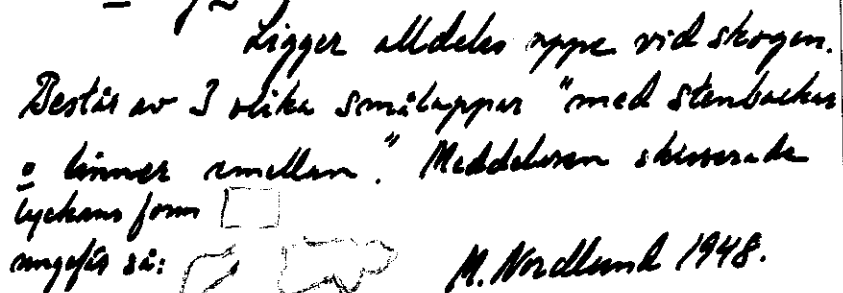 Ligger alldeles uppe vid skogen.
Består av 3 olika smålappar "med stenbackar
o linner emellan." Meddelaren skisserade
lyckans form
ungefär så: M. Nordlund 1948.